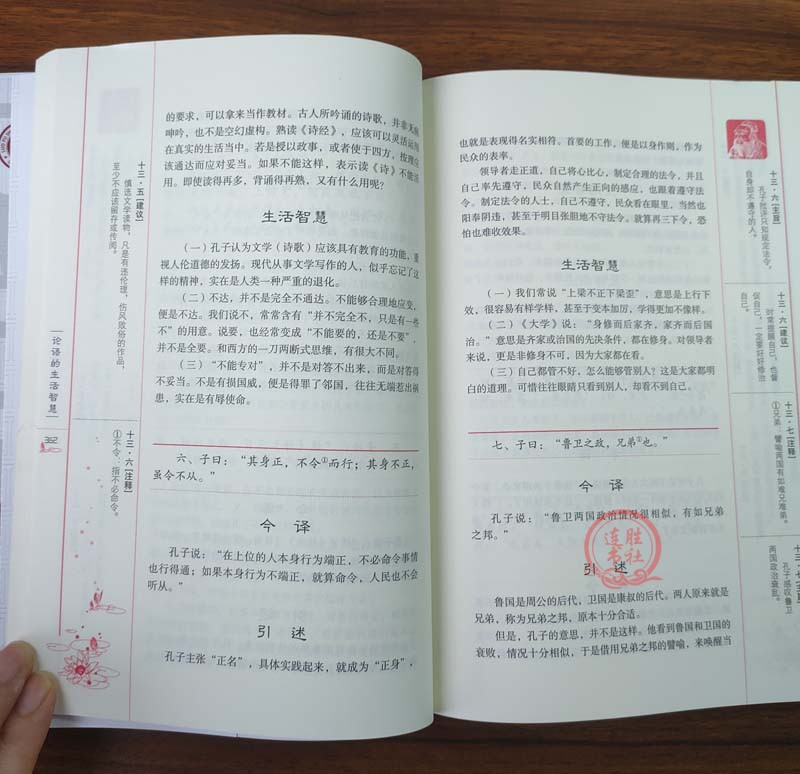 十三·五【建议】
慎选文学读物，凡是有违伦理，伤风败俗的作品，
至少不应该留存或传阅。
论语的生活智慧
362
十三·六【注释】
①不令：指不必命令。
的要求，可以拿来当作教材。古人所吟诵的诗歌，并非无病
呻吟，也不是空幻虚构。熟读《诗经》，应该可以灵活运用
在真实的生活当中。若是授以政事，或者使于四方，按理应
该通达而应对妥当。如果不能这样，表示读《诗》不能活
用。即使读得再多，背诵得再熟，又有什么用呢？
生活智慧
（一）孔子认为文学（诗歌）应该具有教育的功能，重
视人伦道德的发扬。现代从事文学写作的人，似乎忘记了这
样的精神，实在是人类一种严重的退化。
（二）不达，并不是完全不通达。不能够合理地应变，
便是不达。我们说不，常常含有“并不完全不，只是有一些
不”的用意。说要，也经常变成“不能要的，还是不要”，
并不是全要。和西方的一刀两断式思维，有很大不同。
（三）“不能专对”，并不是对答不出来，而是对答得
不妥当。不是有损国威，便是得罪了邻国，往往无端惹出祸
患，实在是有辱使命。
六、子曰：“其身正，不令①而行；其身不正，
虽令不从。”
今译
孔子说：“在上位的人本身行为端正，不必命令事情
也行得通；如果本身行为不端正，就算命令，人民也不会
听从。”
引述
孔子主张“正名”，具体实践起来，就成为“正身”，
也就是表现得名实相符。首要的工作，便是以身作则，作为
民众的表率。
领导者走正道，自己将心比心，制定合理的法令，并且
自己率先遵守，民众自然产生正向的感应，也跟着遵守法
令。制定法令的人士，自己不遵守，民众看在眼里，当然也
阳奉阴违，甚至于明目张胆地不守法令。就算再三下令，恐
怕也难收效果。
生活智慧
（一）我们常说“上梁不正下梁歪”，意思是上行下
效，很容易有样学样，甚至于变本加厉，学得更加不像样。
（二）《大学》说：“身修而后家齐，家齐而后国
治。”意思是齐家或治国的先决条件，都在修身。对领导者
来说，更是非修身不可，因为大家都在看。
（三）自己都管不好，怎么能够管别人？这是大家都明
白的道理。可惜往往眼睛只看到别人，却看不到自己。
七、子曰：“鲁卫之政，兄弟①也。”
今译
孔子说：“鲁卫两国政治情况很相似，有如兄弟
之邦。”
引述
鲁国是周公的后代，卫国是康叔的后代。两人原来就是
兄弟，称为兄弟之邦，原本十分合适。
但是，孔子的意思，并不是这样。他看到鲁国和卫国的
衰败，情况十分相似，于是借用兄弟之邦的譬喻，来唤醒当
十三·六【主旨】
孔子批评只知规定法令，
自身却不遵守的人。
十三·六【建议】
时常提醒自己，也督
促自己，一定要好好修治
自己。
十三·七【注释】
①兄弟：譬喻两国有如难兄难弟。
孔子感叹鲁卫
两国政治衰乱。
连胜
书社